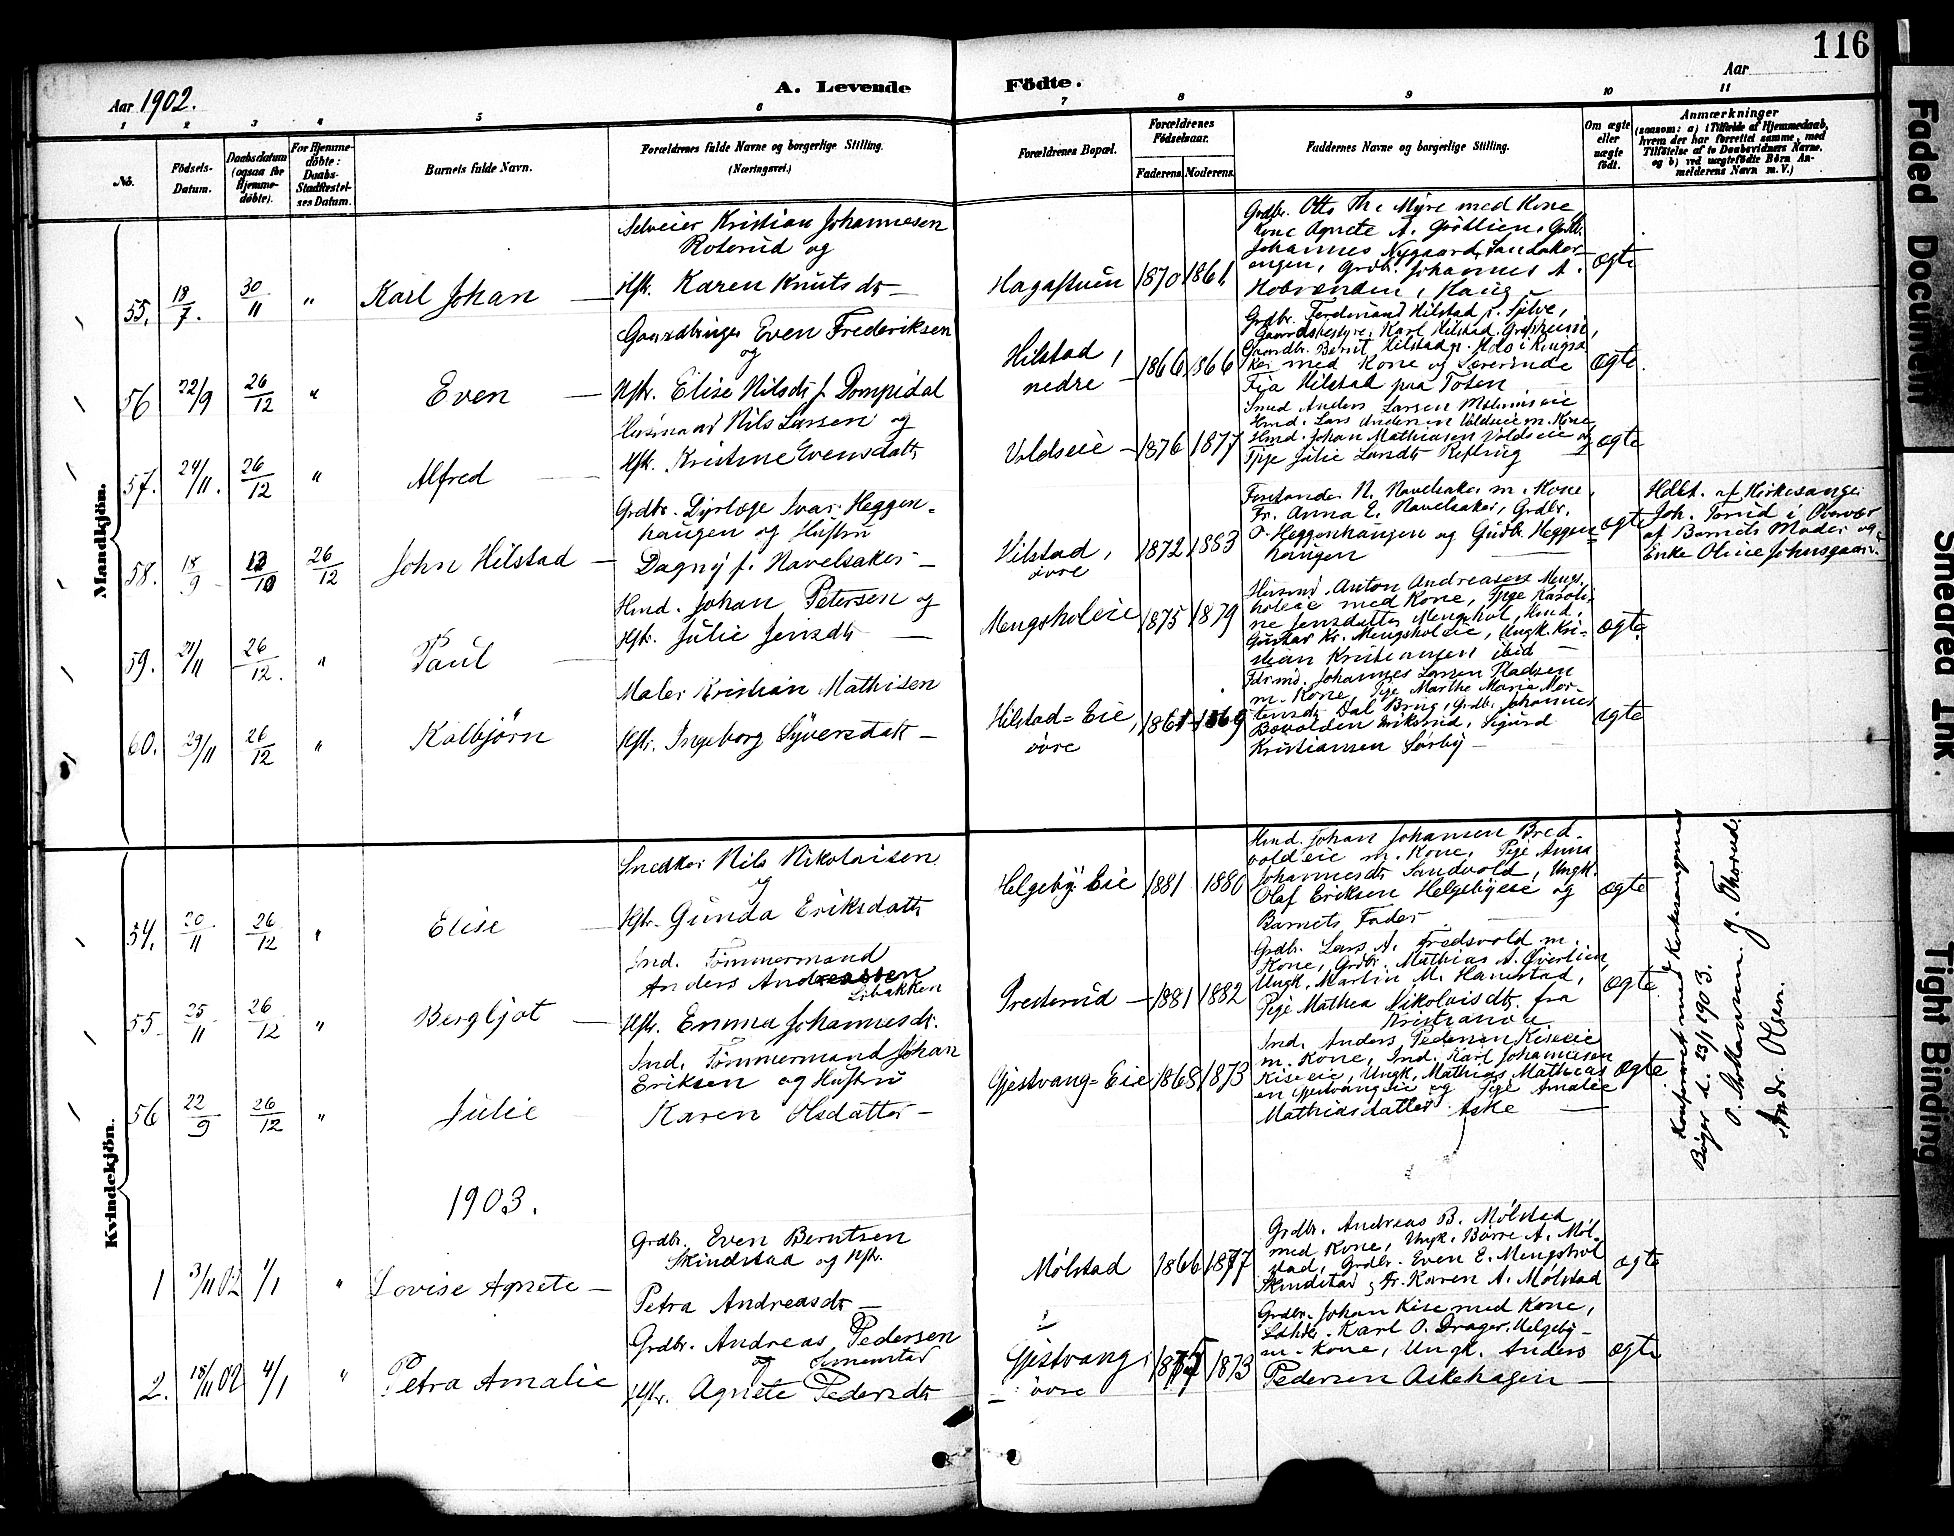 116
Aar 1902.
A. Levende Födte.
Aar
1 2 3 4 5 6 7 8 9 10 11
No.
Födsels-Datum.
Daabsdatum (ogsaa for Hjemme-döbte).
For Hjemme-döbte: Daabs-Stadfæstel-ses Datum.
Barnets fulde Navn.
Forældrenes fulde Navne og borgerlige Stilling.
(Næringsvei.)
Forældrenes Bopæl.
Forældrenes Födselsaar.
Faderens. Moderens.
Faddernes Navne og borgerlige Stilling.
Om ægte eller uægte födt.
Anmærkninger
(saasom: a) i Tilfælde af Hjemmedaab, hvem der har forrettet samme, med Tilföielse af to Daabsvidners Navne, og b) ved uægtefödte Börn An-melderens Navn m. V.)
Mandkjön.
55. 18/7. 30/11 " Karl Johan
Selveier Kristian Johannesen
Roterud og
Hstr. Karen Knutsdtr
Hagastuen 1870 1861
Grdbr. Otto Th. Myre med Kone
Kone Agnete A. Grødlien, Grdb.
Johannes Nygaard, Sandaker-
engen, Grdb. Johannes A.
ægte
56 22/9 26/12 " Even
Gaardbruger Even Frederiksen
og
Hstr. Elise Nilsdtr f. Dompidal
Hilstad, nedre 1866 1866
Grdbr. Ferdinand Hilstad
Gaardsbestyr. Karl Hilstad
Gaardbr. Bernt Hilstad
ker med Kone og Severinde
Fra Hilstad paa Toten
ægte.
57. 24/11. 26/12 " Alfred
Husmand Nils Larsen og
Hstr. Kristine Evensdatter
Voldseie 1876 1877
Smed Anders Larsen
Hmd. Lars Andersen Voldseie m. Kone
Hmd. Johan Mathiasen Voldseie og
Pige Julie Larsdtr
ægte
58. 18/9 12/10 26/12 John Hilstad
Grdbr. Dyrlæge Ivar Heggen-
haugen og Hustru
Dagny f. Navelsaker
Hilstad, øvre 1872 1883
Forstander N. Navelsaker m. Kone,
Fr. Anna E. Navelsaker, Grdbr.
O. Heggenhaugen og Gudbr. Heggen-
haugen
ægte
Hdbt. af Kirkesanger
Joh. Torud i Overvær
af Barnets Moder og
Enke Oline Johnsgaard.
59. 21/11 26/12. " Paul
Hmd. Johan Petersen og
Hstr. Julie Jensdtr
Mengsholeie 1875 1879
Husmd. Anton Andreasen Mengs-
holeie med Kone, Pige Karoli-
ne Jensdatter Mengshol, Hmd.
Gustav Kr. Mengsholeie, Ungk. Kri-
stian Kristiansen ibid
ægte.
60. 29/11 26/12 " Kolbjørn
Maler Kristian Mathisen
Hstr. Ingeborg Syversdatt
Hilstad=Eie, øvre 1861 1869
Johannes Larsen Pladsen
m. Kone, Pige Marthe Marie Mor-
tensdtr Dal Brug, Grdb. Johannes
Eriksrud, Sigurd
Kristiansen Sørby
ægte
Kvindekjön.
54. 20/11 26/12 " Elise
Snedker Nils Nikolaisen
og
Hstr. Gunda Eriksdatter
Helgeby Eie 1881 1880
Hmd. Johan Johansen Bred-
voldeie m. Kone, Pige Anna
Johannesdtr Sandvold, Ungk.
Olaf Eriksen Helgebyeie og
Barnets Fader
ægte
55. 25/11 26/12 " Bergljot
Ind. Tømmermand
Anders Andreassen
Libakken
Hstr. Emma Johannesdtr.
Presterud 1881 1882
Grdbr. Lars A. Fredsvold m.
Kone, Grdbr. Mathias A. Øverlien,
Ungk. Martin M. Hanestad,
Pige Mathea Nikolaisdtr. fra
Kristiania
ægte
56 22/9 26/12 " Julie
Ind. Tømmermand Johan
Eriksen og Hustru
Karen Olsdatter
Gjestvang=Eie 1868 1873
Ind. Anders Pedersen Kiseeie
m. Kone, Ind. Karl Johannesen
Kiseeie, Ungk. Mathias Mathias
en Gjestvangseie og Pige Amalie
Mathiasdatter Aske
ægte
Konfereret med Kirkesangerens
Bøger d. 23/1 1903.
J. Thorud.
Andr. Olsen.
1903.
1 3/11 02 1/1 " Lovise Agnete
Grdbr. Even Berntsen
Skindstad og Hstr.
Petra Andreasdtr
Mølstad 1866 1877
Grdbr. Andreas B. Mølstad
med Kone, Ungk. Børre A. Møl-
stad, Grdbr. Even E. Mengshol
Skindstad, Fr. Karen A. Mølstad
ægte
2. 18/11 02 4/1 " Petra Amalie
Grdbr. Andreas Pedersen
og Simenstad
Hstr. Agnete Pedersdtr
Gjestvang, øvre 1875 1873
Grdbr. Johan Kise med Kone,
Karl O. Drager, Helgeby
m. Kone, Ungk. Anders
Pedersen Askehagen
ægte
Faded Document
Smeared Ink.
Tight Binding